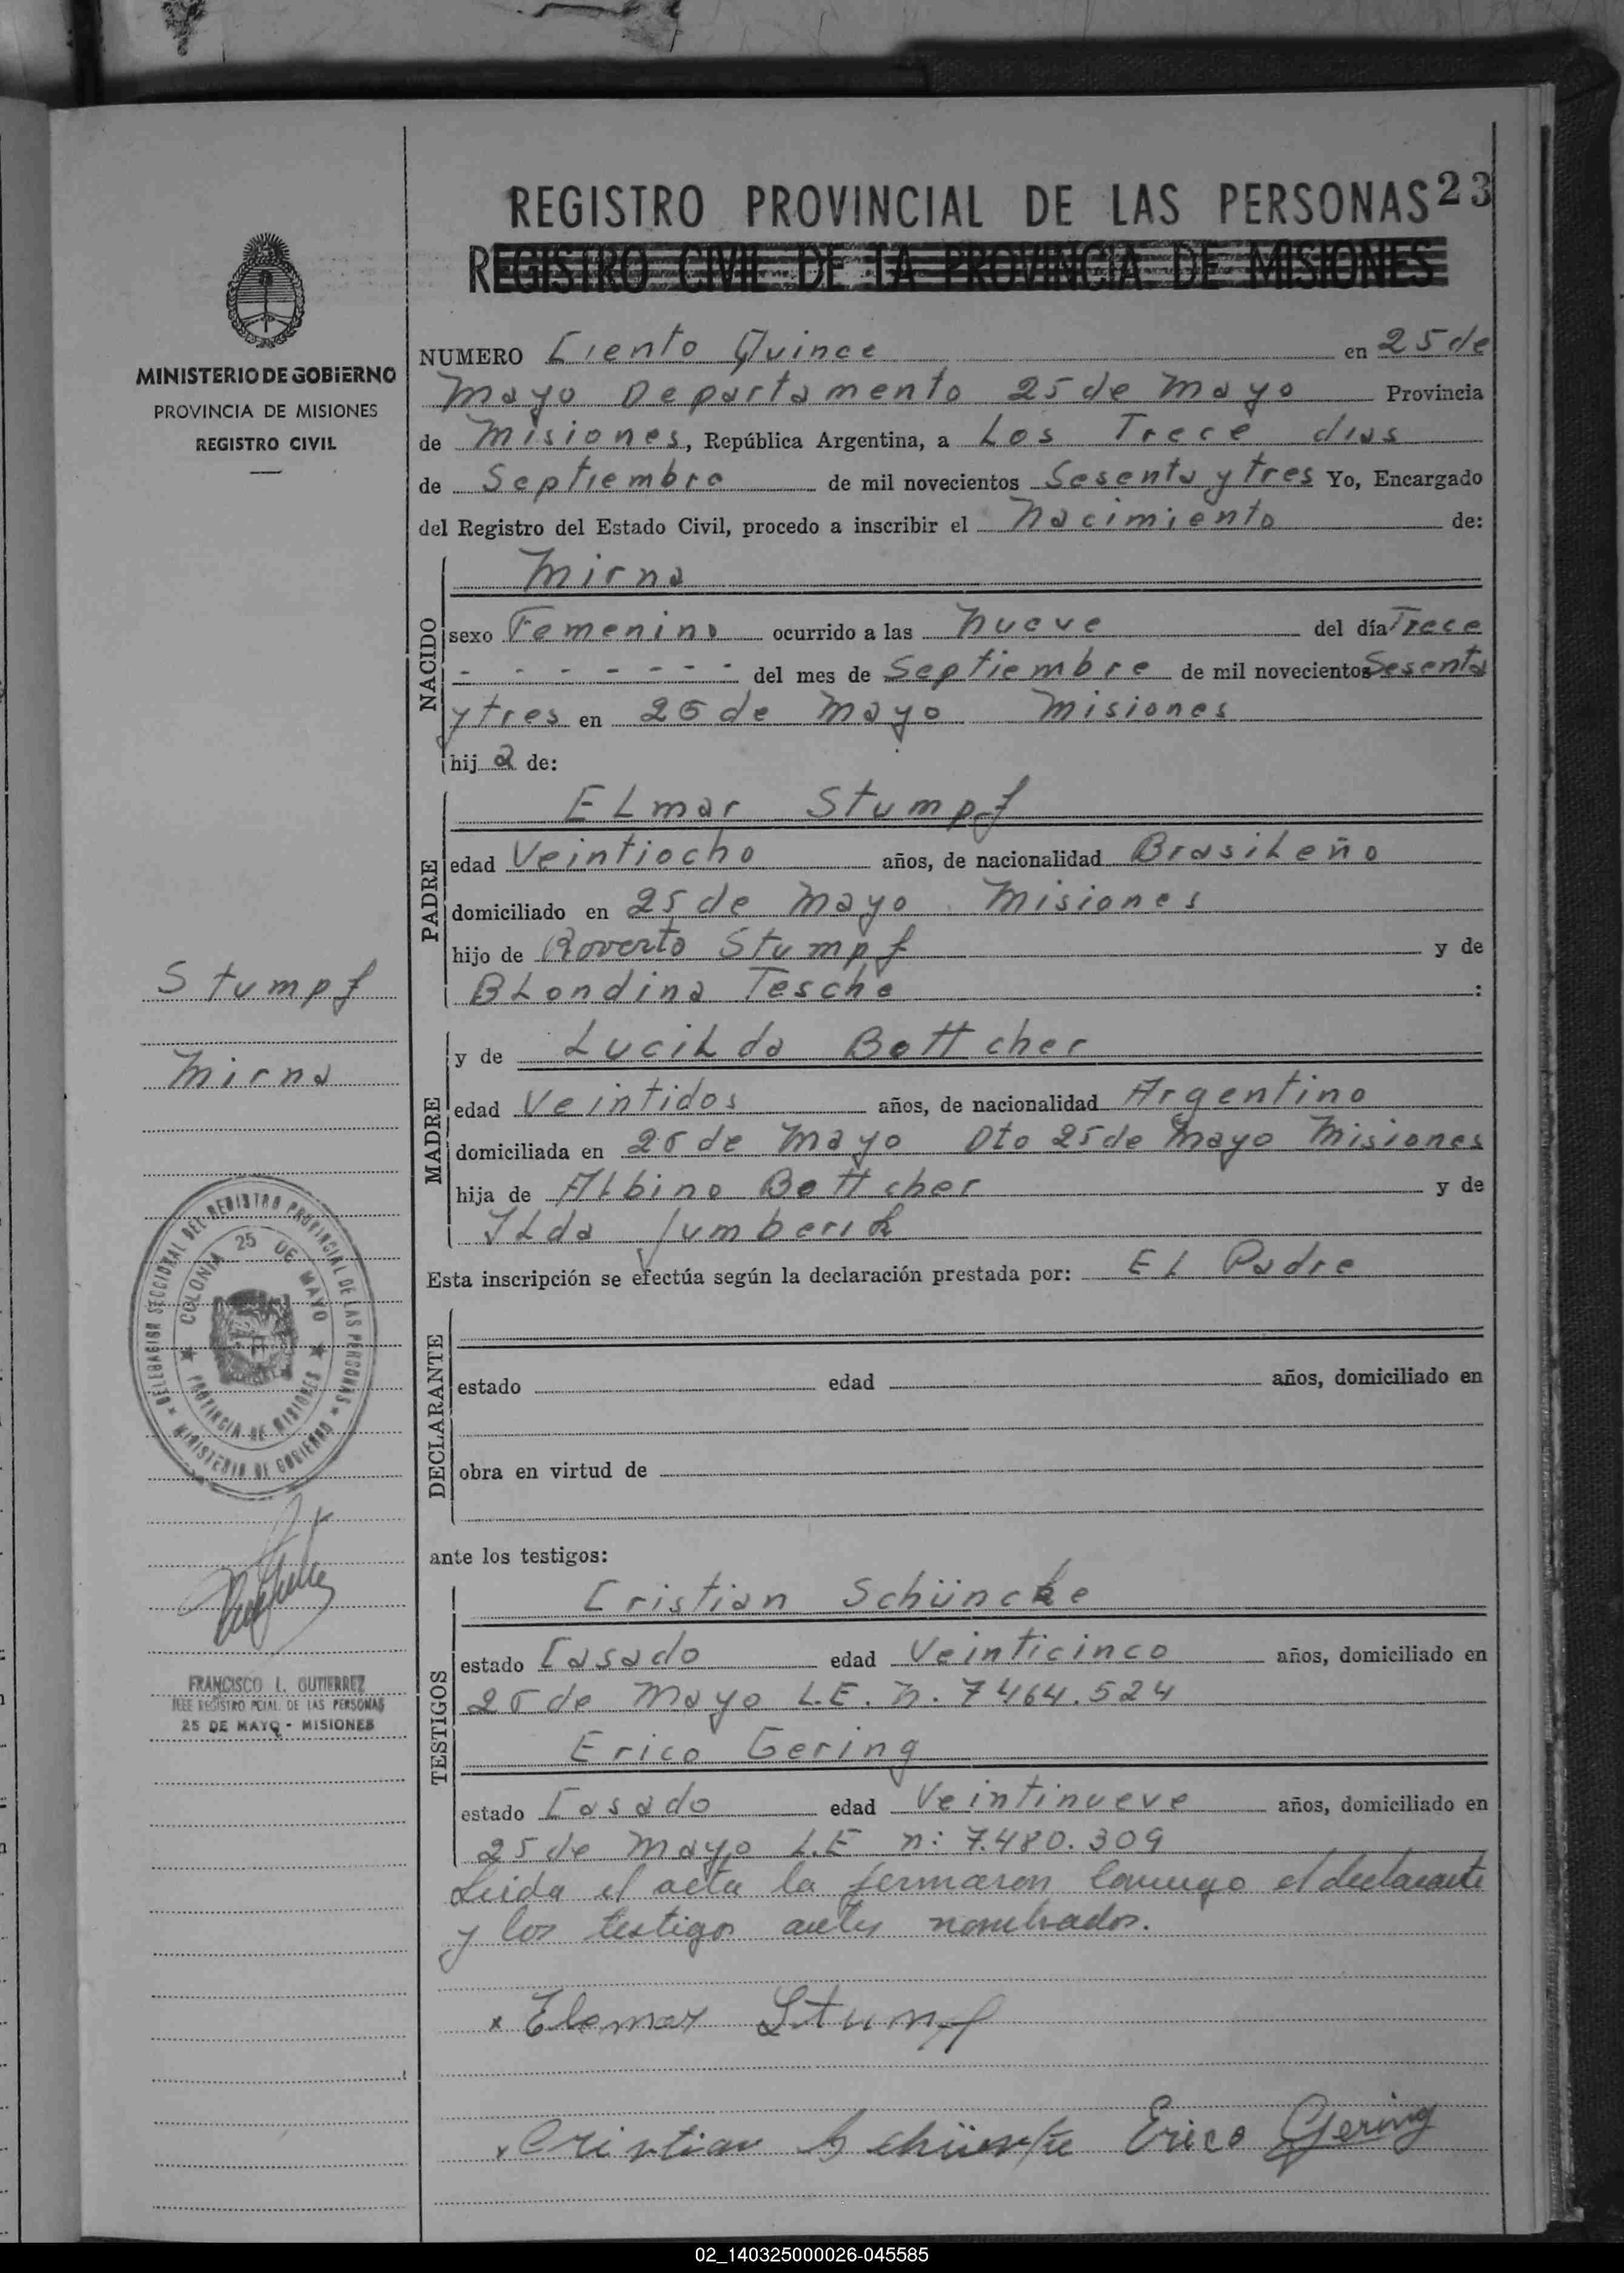 REGISTRO PROVINCIAL DE LAS PERSONAS 23
REGISTRO CIVIL DE LA PROVINCIA DE MISIONES
MINISTERIO DE GOBIERNO
PROVINCIA DE MISIONES
REGISTRO CIVIL
NUMERO Ciento Quince en 25 de
Mayo Departamento 25 de Mayo Provincia
de Misiones, República Argentina, a Los Trece dias
de Septiembre de mil novecientos Sesenta y tres Yo, Encargado
del Registro del Estado Civil, procedo a inscribir el Nacimiento de:
NACIDO
Mirna
sexo Femenino ocurrido a las Nueve del día Trece
- - - - - - - del mes de Septiembre de mil novecientos Sesenta
y tres en 25 de Mayo Misiones
hij a de:
PADRE
ELmar Stumpf
edad Veintiocho años, de nacionalidad BrasiLeño
domiciliado en 25 de Mayo Misiones
hijo de Roverto Stumpf y de
BLondina Tesche :
MADRE
y de LuciLda Bottcher
edad Veintidos años, de nacionalidad Argentino
domiciliada en 25 de Mayo Dto 25 de Mayo Misiones
hija de ALbino Bottcher y de
ILda
Esta inscripción se efectúa según la declaración prestada por: EL Padre
DECLARANTE
estado edad años, domiciliado en
obra en virtud de
ante los testigos:
TESTIGOS
Cristian Schüncke
estado Casado edad Veinticinco años, domiciliado en
25 de Mayo L.E. n. 7464.524
Erico Gering
estado Casado edad Veintinueve años, domiciliado en
25 de Mayo L.E n: 7.480.309
Leida el acta la fermaron conmigo el declarante
y los testigos antes nombrados.
x Elemar Stumpf
x Cristian Schüncke Erico Gering
Stumpf
Mirna
DELEGACION SECCIONAL DEL REGISTRO PROVINCIAL DE LAS PERSONAS
MINISTERIO DE GOBIERNO
COLONIA 25 DE MAYO
PROVINCIA DE MISIONES
FRANCISCO L. GUTIERREZ
JEFE REGISTRO PCIAL. DE LAS PERSONAS
25 DE MAYO - MISIONES
02_140325000026-045585